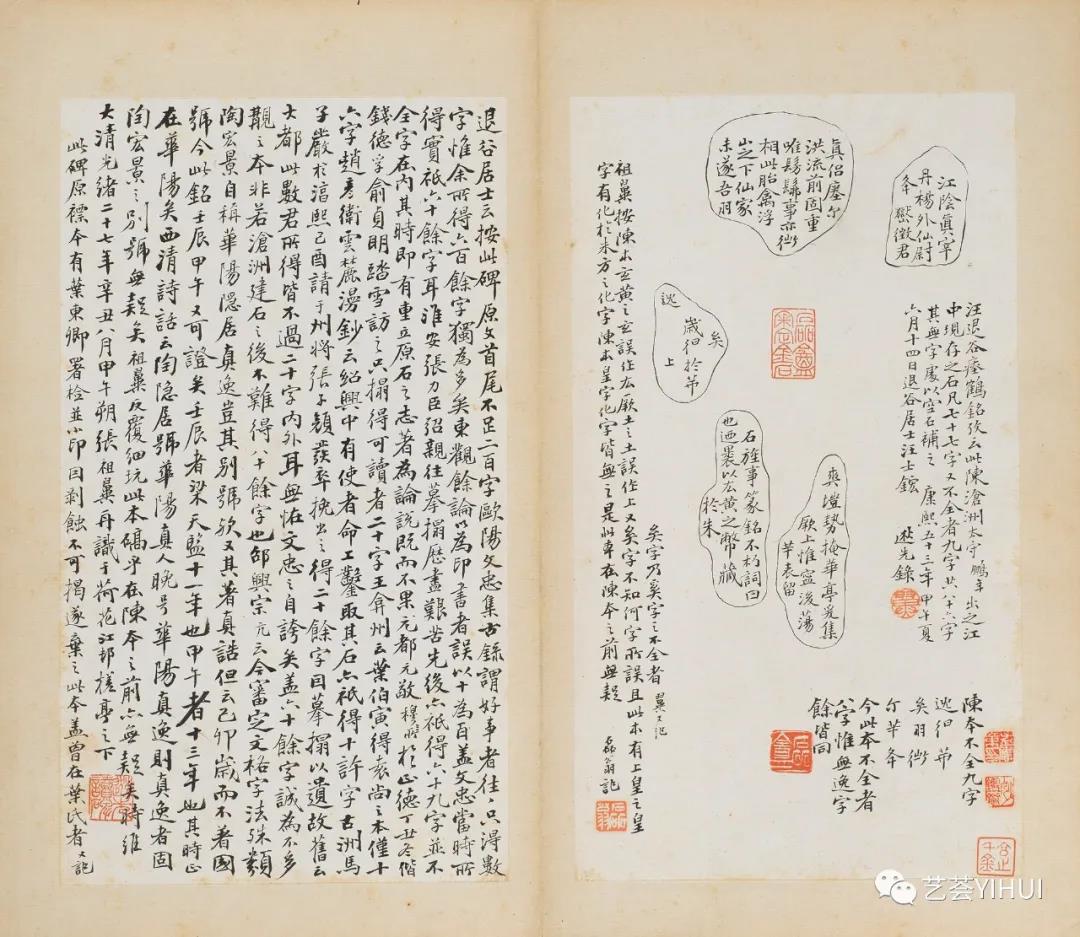 江陰真宰
丹楊外仙尉
夅㠪徵君
真侶瘞尔
洪流前固重
唯髣髴事亦微
相此胎禽浮
山之下仙家
未遂吾羽
矣
歲徊於茀
逃
上
爽塏勢掩華亭爰集
厥土惟寧後蕩
荢表留
石旌事篆銘不朽詞曰
也迺裹以玄黃之幣藏
於朱
汪退谷瘞鶴銘攷云此陳滄洲太守鵬年出之江
中現存之石凡七十七字又不全者九字共八十六字
其無字處以空石補之 康熙五十三年甲午夏
六月十四日退谷居士汪士鋐
遬先錄
陳本不全九字
逃徊茀
矣羽微
尔荢夅
今此本不全者
八字惟無逃字
餘皆同
矣字乃奚字之不全者 鼻又記
祖鼻按陳本玄黃之玄誤作厷厥土之土誤作上又矣字不知何字所誤且此本有上皇之皇
字有化於朱方之化字陳本皇字化字皆無之是此本在陳本之前無疑
磊翁記
退谷居士云按此碑原文首尾不足二百字歐陽文忠集古錄謂好事者往往只得數
字惟余所得六百餘字獨為多矣東觀餘論以為印書者誤以十為百盖文忠當時所
得實衹六十餘字耳淮安張力臣弨親往摹搨歷盡艱苦先後亦衹得六十九字並不
全字在內其時即有重立原石之志著為論說既而不果元都元敬穆嘗於正德丁丑冬偕
錢德孚俞貞明踏雪訪之只搨得可讀者二十字王弇州云葉伯寅得袁尚之本僅十
六字趙彥衛雲麓漫鈔云紹興中有使者命工鑿取其石亦衹得十許字古洲馬
子嚴於淳熙己酉請于州將張子顏發卒挽出之得二十餘字因摹搨以遺故舊云
大都此數君所得皆不過二十字內外耳無怪文忠之自誇矣盖六十餘字誠為不多
覯之本非若滄洲建石之後不難得八十餘字也邵興宗亢云今審定文格字法殊類
陶宏景自稱華陽隱居真逸豈其別號欤又其著真誥但云己卯歲而不著國
號今此銘壬辰甲午又可證矣壬辰者梁天監十一年也甲午者十三年也其時正
在華陽矣西清詩話云陶隱居號華陽真人晚号華陽真逸則真逸者固
陶宏景之別號無疑矣祖鼻反覆細玩此本碻乎在陳本之前亦無疑矣時維
大清光緒二十七年辛丑八月甲午朔張祖鼻再識于荷花江邨槎亭之下
此碑原褾本有葉東卿署检並小印因剥蝕不可揭遂棄之此本盖曾在葉氏者 又記
艺荟YIHUI